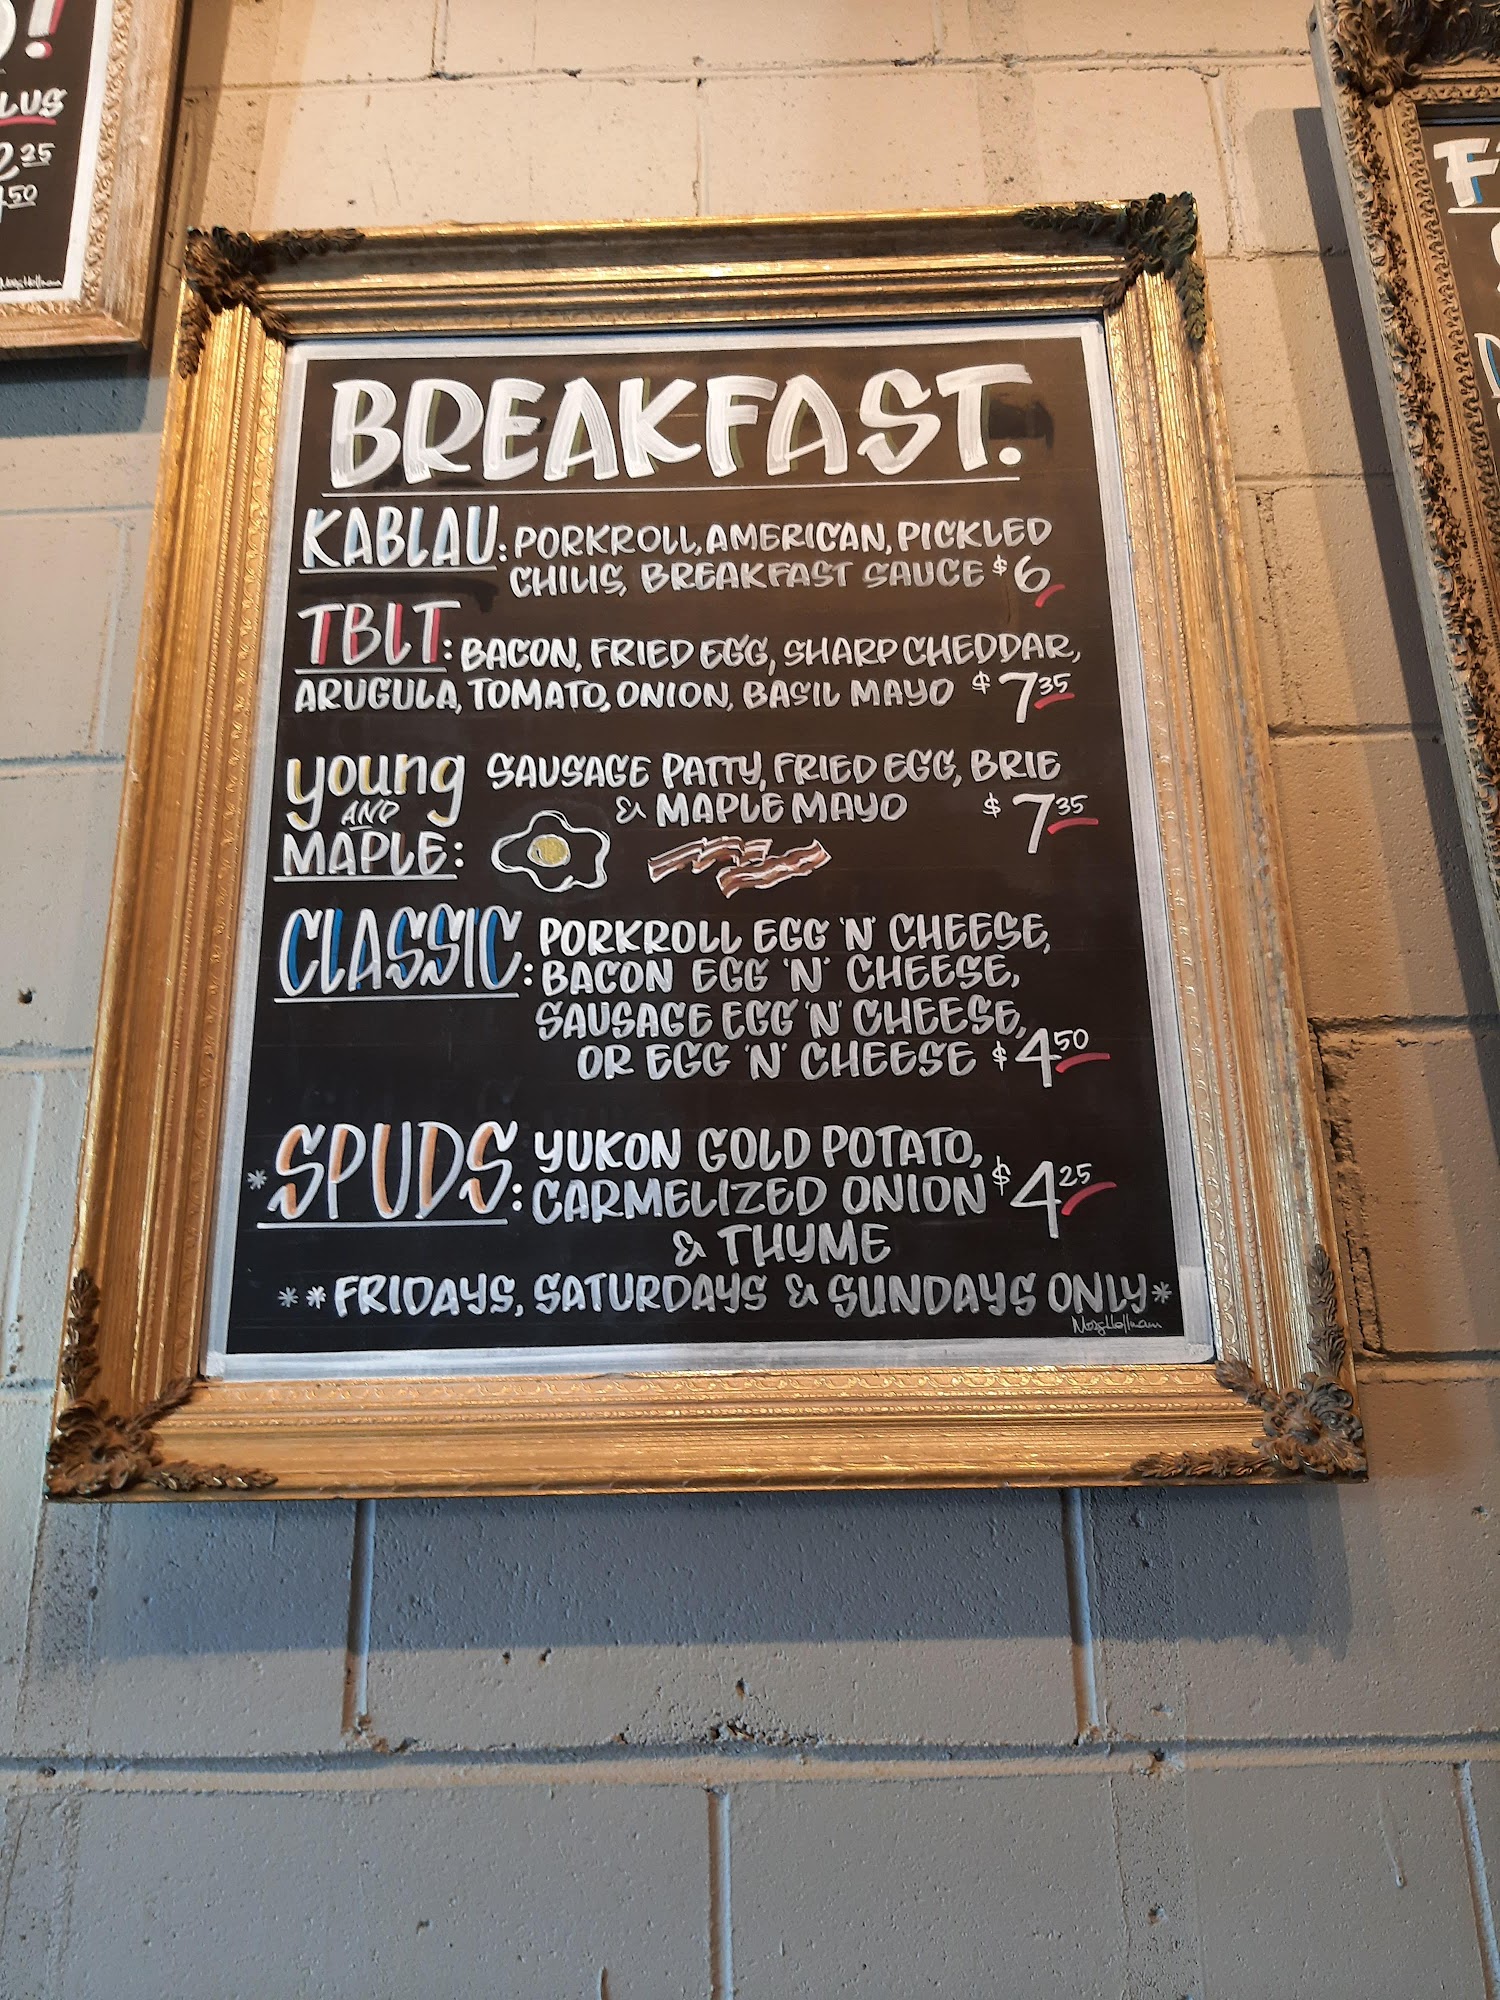 !
LUS
2 35
50
BREAKFAST.
KABLAU: PORKROLL, AMERICAN, PICKLED
CHILIS, BREAKFAST SAUCE $6
TBLT: BACON, FRIED EGG, SHARP CHEDDAR,
ARUGULA, TOMATO, ONION, BASIL MAYO $7 35
young SAUSAGE PATTY, FRIED EGG, BRIE
AND & MAPLE MAYO $7 35
MAPLE:
CLASSIC: PORKROLL EGG 'N' CHEESE,
BACON EGG 'N' CHEESE,
SAUSAGE EGG 'N' CHEESE,
OR EGG 'N' CHEESE $4 50
*SPUDS: YUKON GOLD POTATO,
CARMELIZED ONION $4 25
& THYME
**FRIDAYS, SATURDAYS & SUNDAYS ONLY*
F